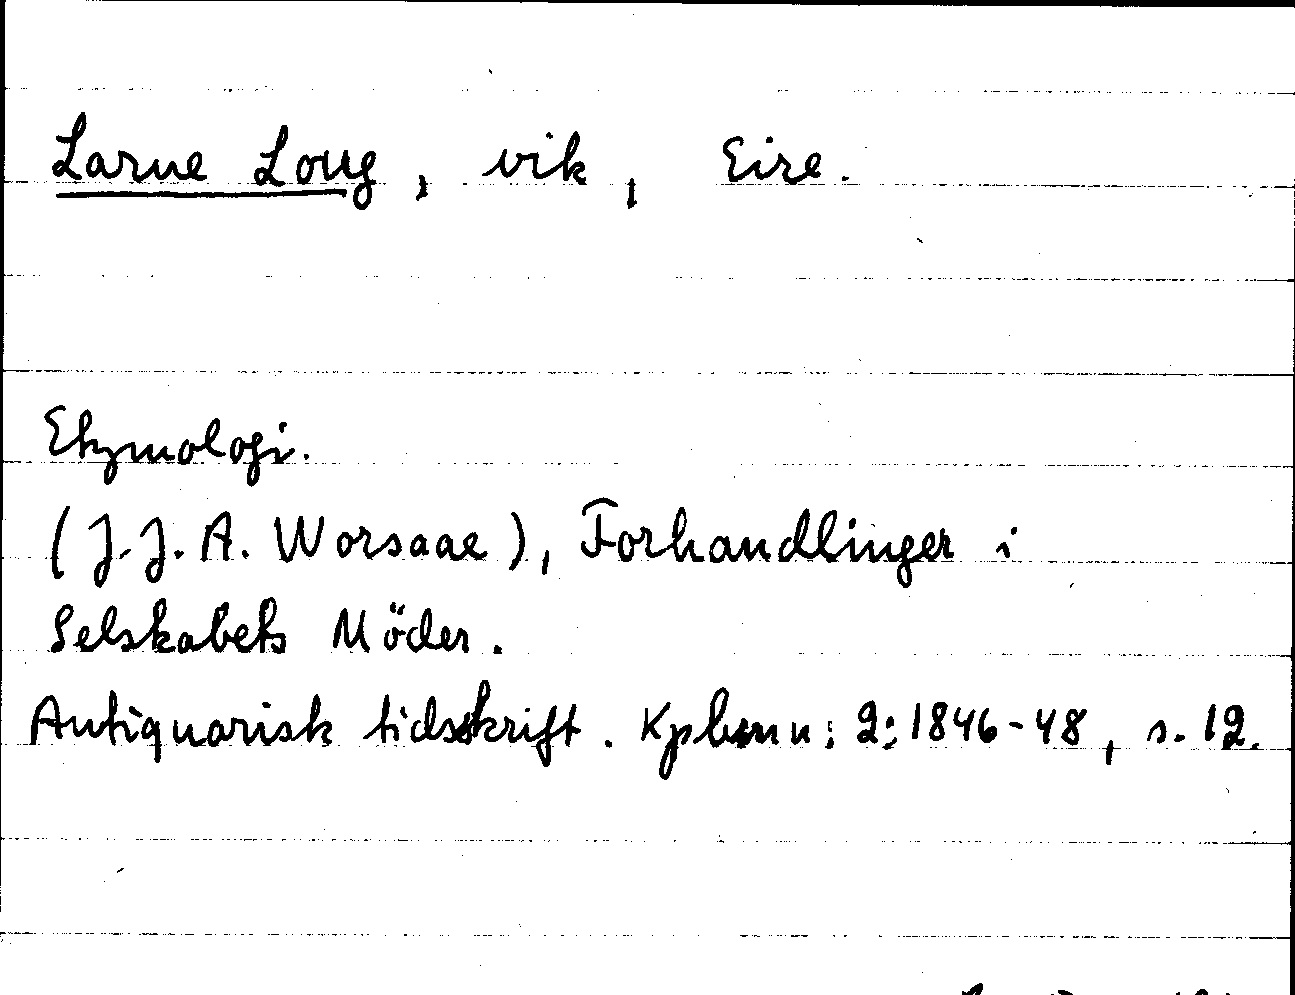 Larne Loug, vik, Eire.
Etymologi.
(J.J.A. Worsaae), Forhandlinger i
Selskabets Möder.
Antiquarisk tidsskrift. Kpbmn: 2:1846-48, s. 12.